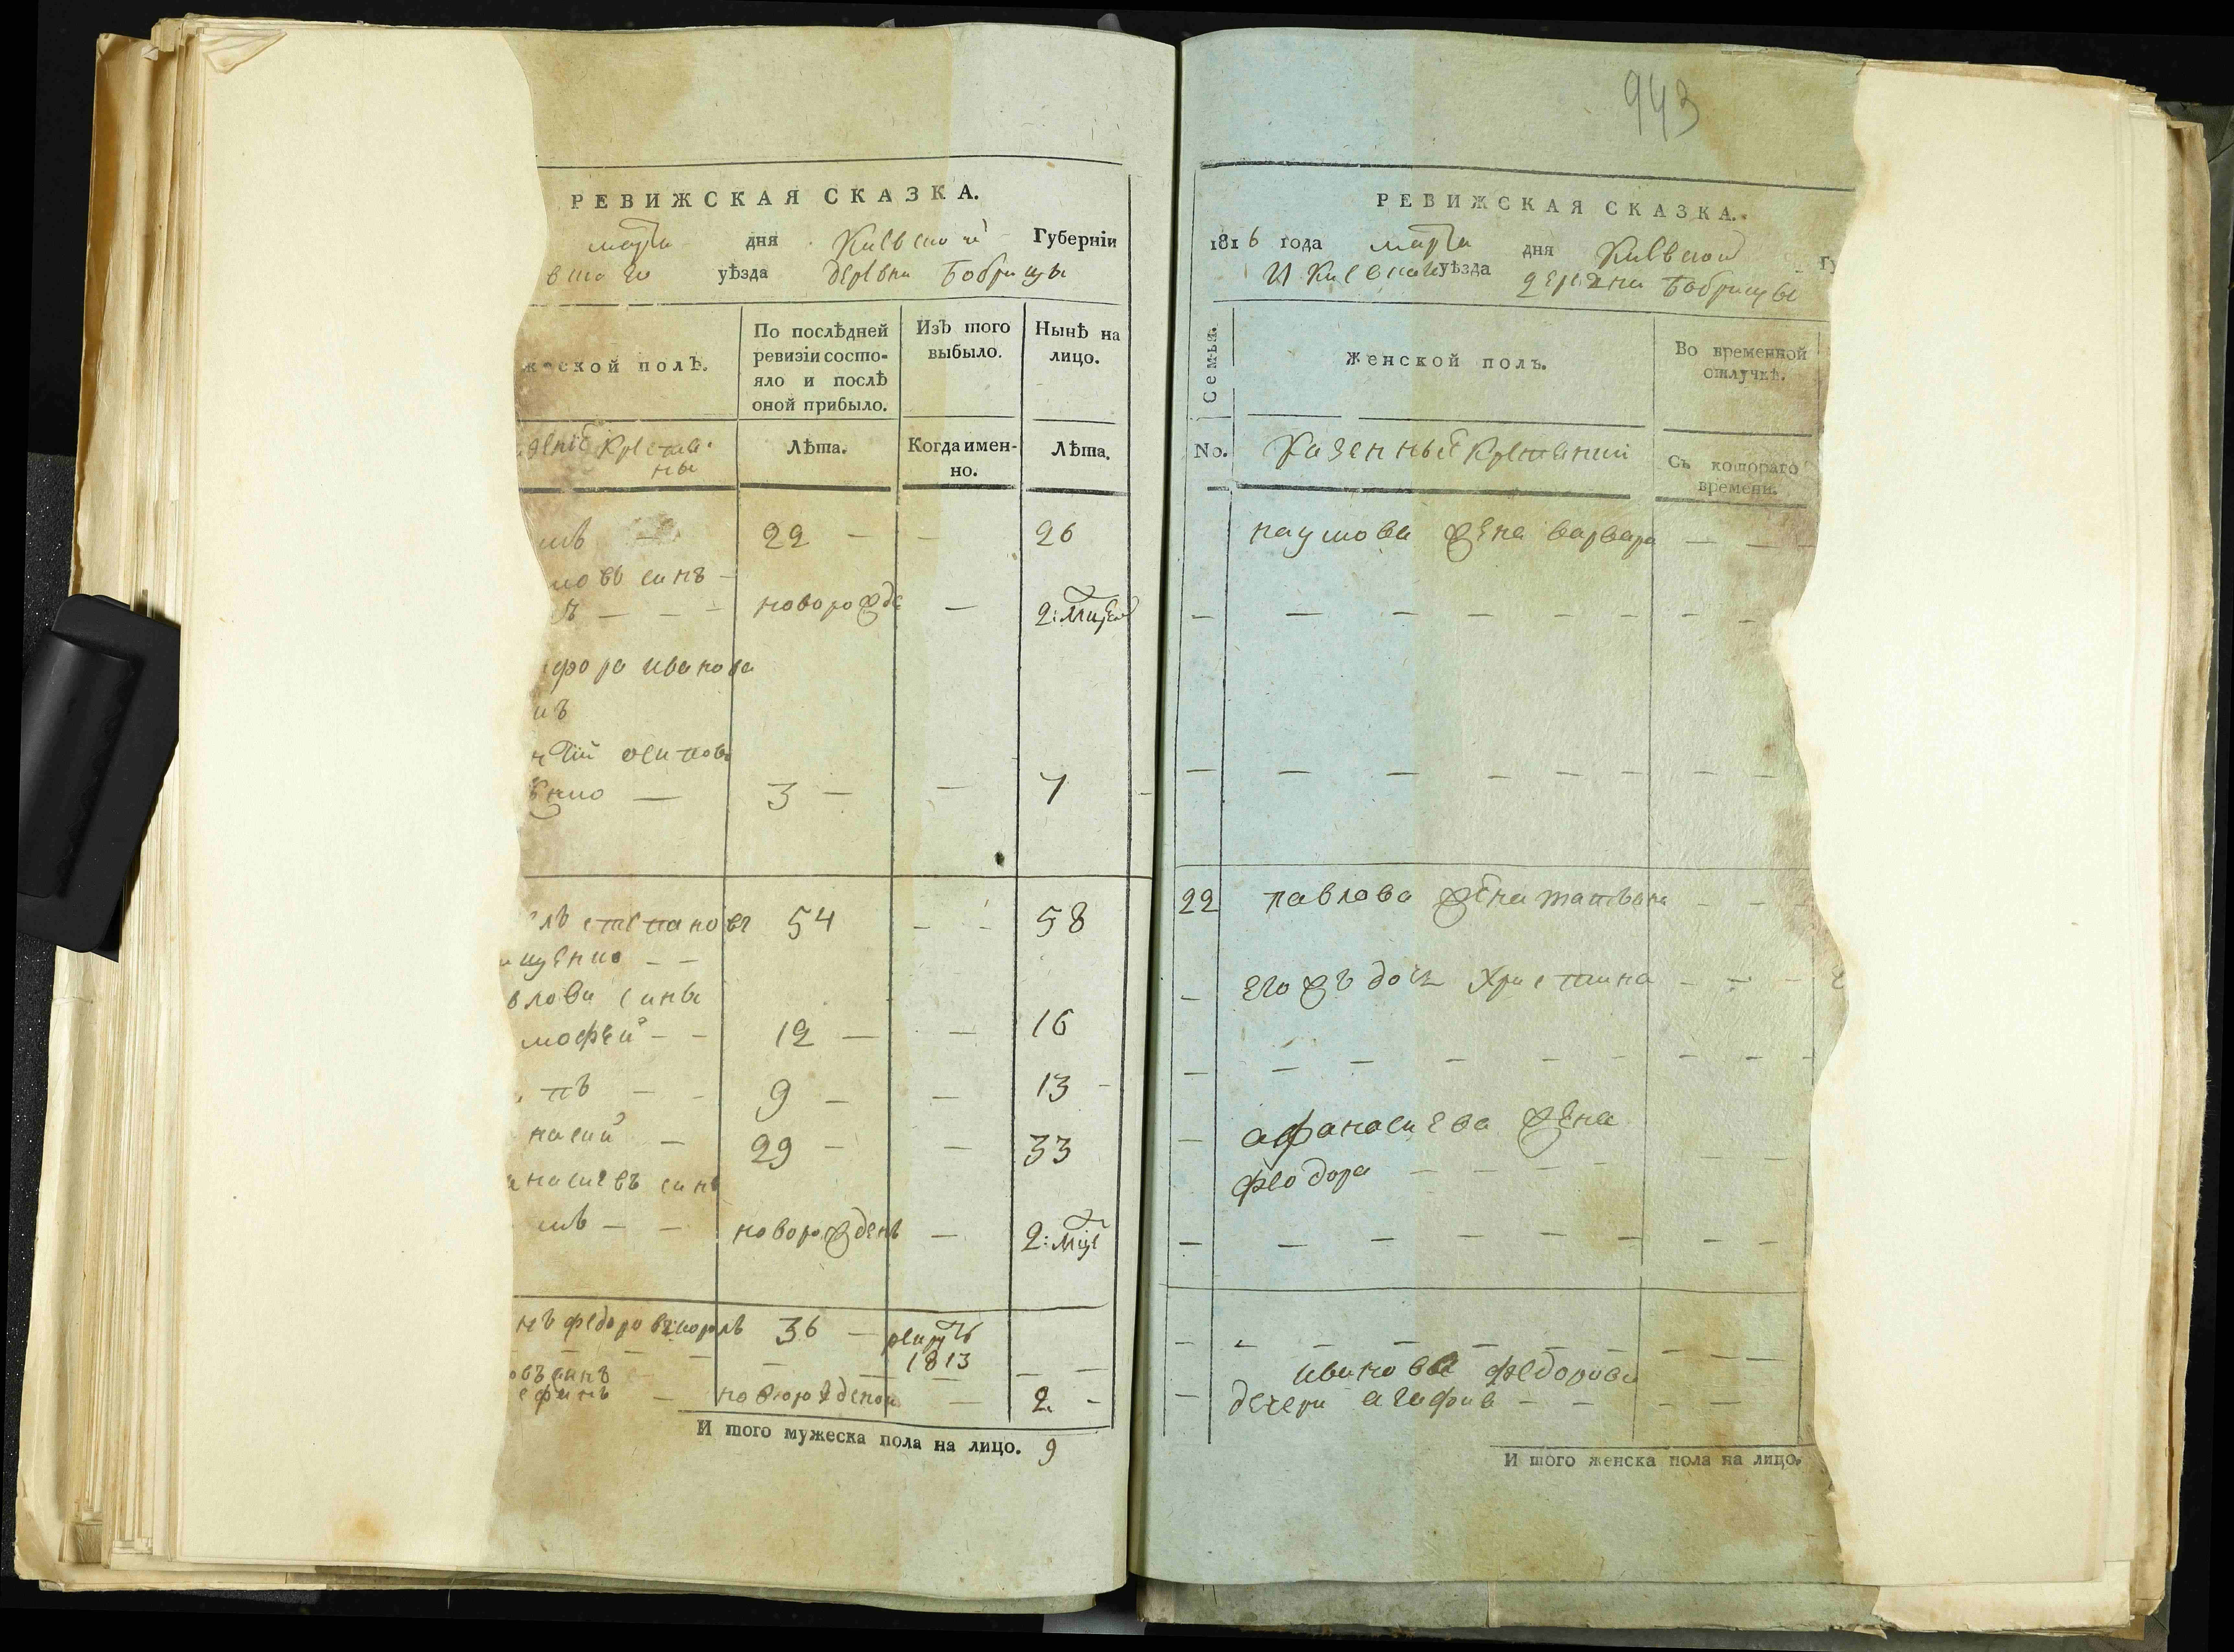 РЕВИЖСКАЯ СКАЗКА.
марта дня Киевской Губерніи
вшаго уѣзда деревни Бобрицы
жеской полъ.
По послѣдней ревизіи состо-
яло и послѣ
оной прибыло.
Изъ того
выбыло.
Нынѣ на
лицо.
Крестья
ны
Лѣта.
Когда имен-
но.
Лѣта.
мъ — 22 — — 26
мовъ синъ —
ъ — — — новорожде — 2: мцей
фора иванова
нъ
тій осипов
енко — 3 — — 7
лъ степановъ 54 — — 58
щенко — —
влови сины
мофей — — 12 — — 16
пъ — — 9 — — 13 —
насий — 29 — — 33
насиевъ синъ
мъ — — новорожденъ — 2: мце
нъ федоровъ король 36 — рекрутъ
1813
овъ синъ
ефимъ — новорожденой — 2 —
И того мужеска пола на лицо. 9
943
РЕВИЖСКАЯ СКАЗКА.
1816 года марта дня Киевской Гу
И Киевскаго уѣзда деревни Бобрицы
Семья.
Женской полъ.
Во временной
отлучкѣ.
No.
Казенныи Крестянии
Съ котораго
времени.
наумова жена варвара — — —
22 павлова жена татъяна — — —
— его жъ дочъ христина — — —
— афанасиева жена
феодора — — — — — —
ивановы федорови
— дечери агафия — — — —
И того женска пола на лицо.